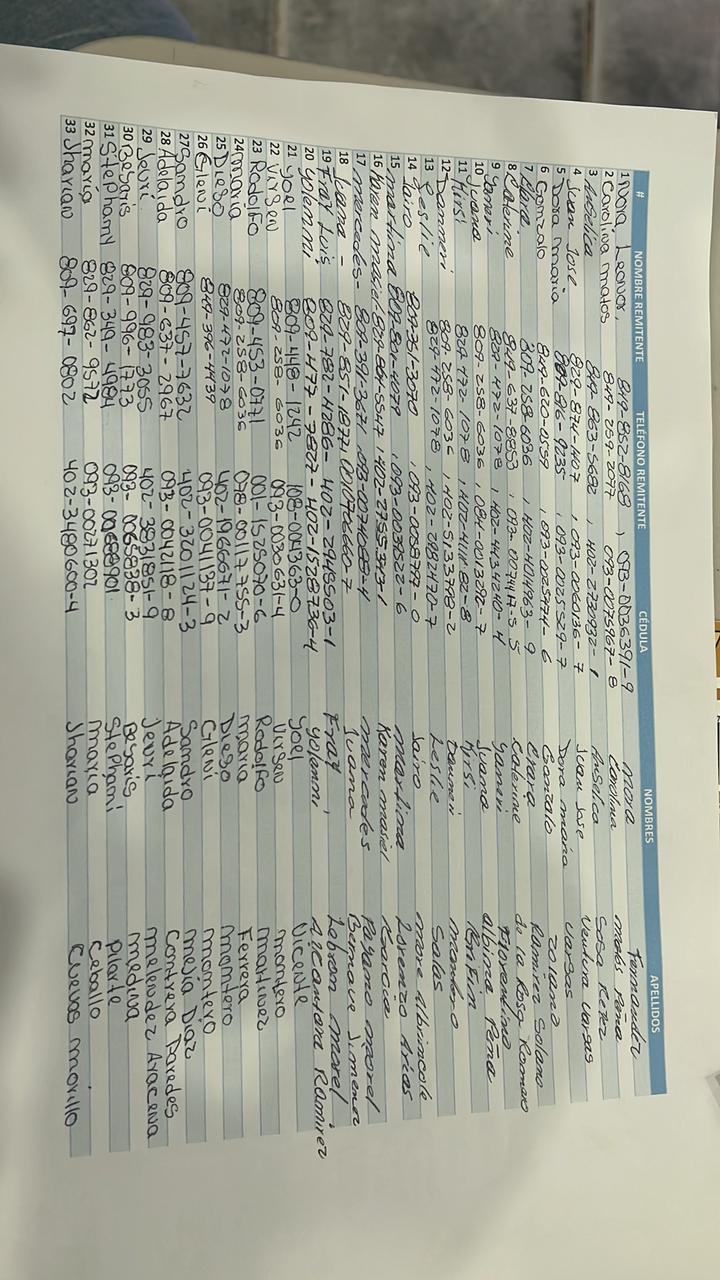 # NOMBRE REMITENTE TELÉFONO REMITENTE CÉDULA NOMBRES APELLIDOS
1 Leonor, 849-852-8168, 093-0036391-9 Fernandez
2 Carolina matos 849-259-2077 093-0075967-8 Carolina matos Peña
3 Angelica 849-863-5682, 402-2730932-1 Angelica Sosa Perez
4 Juan Jose 829-874-1407, 093-0060136-7 Juan Jose Ventura Vargas
5 Dora maria 809-816-9235, 093-0025529-7 Dora maria Vargas
6 Gonzalo 849-620-0539, 093-0025974-6 Gonzalo Zolano
7 809-258-6036, 402-4014963-9 Ramirez Solano
8 Caterine 849-637-8853, 093-0074417-5 Caterine de la Rosa Romano
9 Yaneri 809-472-1078, 402-4434240-4 Yaneri Florentino
10 Juana 809-258-6036, 084-0013292-7 Juana albino Peña
11 Kirsi 829 472-1078, 402-4111182-8 Kirsi
12 Danmeri 809-258-6036, 402-5133798-2 Danmeri
13 Leslie 829-472-1078, 402-3882470-7 Leslie Salas
14 Jairo 809-351-3070, 093-0058799-0 Jairo
15 martina 809-814-4079, 093-0039522-6 martina Lorenzo Arias
16 Karen masiel 829-864-5547, 402-2755343-1 Karen masiel Garcia
17 mercedes- 809-391-3671, 093-0070889-4 mercedes Payano morel
18 Juana - 829-851-1877, 0010706660-7 Juana Jimenez
19 Frat Luis, 829-782-4286- 402-2948503-1 Frat, Lebron morel,
20 yolenni 809-4177-7827-402-1528736-4 yolenni Alcantara Ramirez
21 yoel 809-448-1242 108-0043630 yoel Vicente
22 Virgen 809-258-6036 093-0030631-4 Virgen montero
23 Rodolfo 809-453-0771 001-1525070-6 Rodolfo martinez
24 maria 809-258-6036 078-0011755-3 maria Ferrera
25 Diego 829-472-1078 402-1966671-2 Diego montero
26 Gleni 849-396-4439 093-0041137-9 Gleni montero
27 Sandro 809-457-7632 402-30011124-3 Sandro mejia Diaz
28 Adelaida 809-637-2967 093-0042118-8 Adelaida Contrera Paredes
29 Jeuri 829-983-3055 402-3831851-9 Jeuri melendez Aracena
30 Besaris 809-996-1773 093-0065838-3 Besaris medina
31 Stephany 829-349-4984 Stephani Plarte
32 maria 829-862-9572 093-00271302 maria Ceballo
33 Jharian 809-697-0802 402-3480600-4 Jharian Cuevas morillo